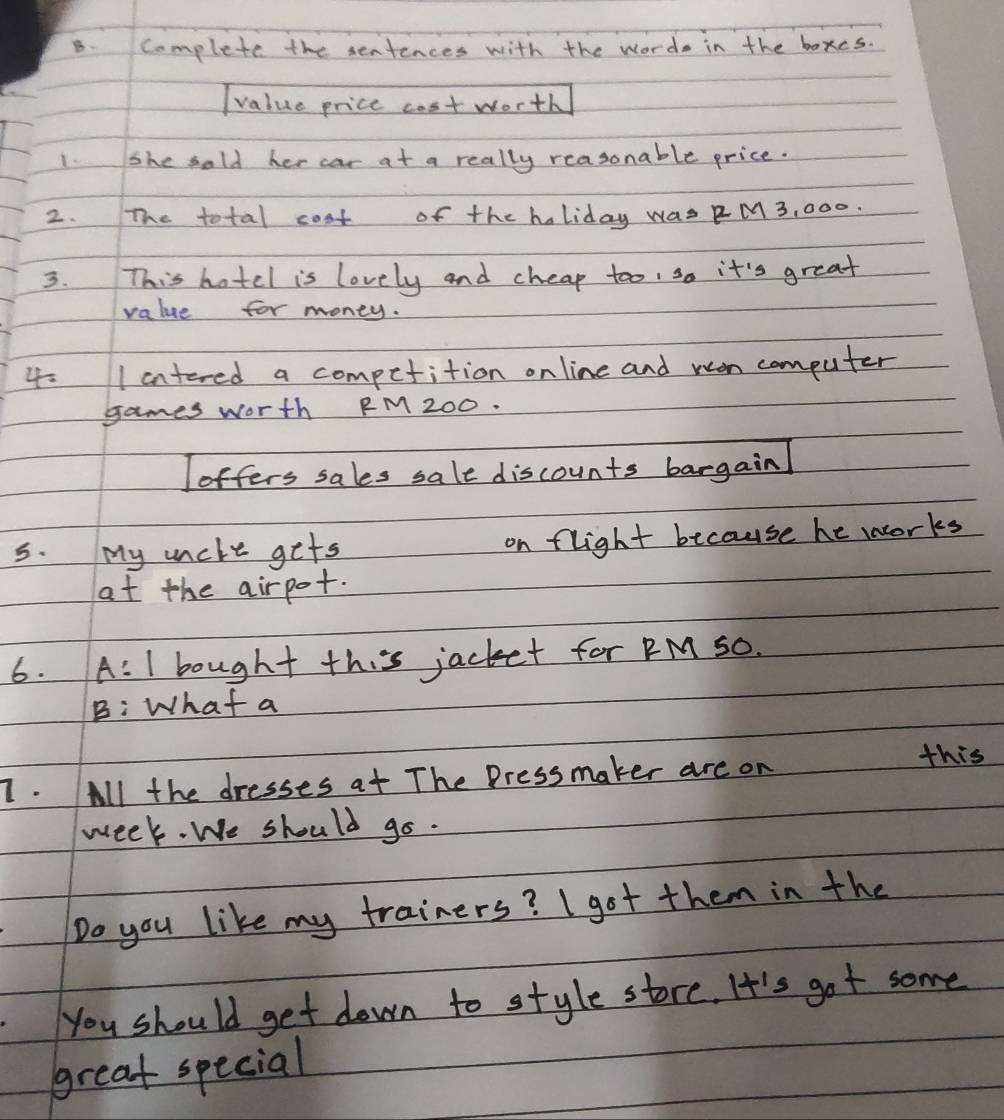 B. Complete the sentences with the words in the boxes.
value price cost worth
1. She sold her car at a really reasonable price.
2. The total cost of the holiday was RM3,000.
3. This hotel is lovely and cheap too, so it's great
value for money.
4. I entered a competition online and won computer
games worth RM200.
offers sales sale discounts bargain
5. My uncle gets on flight because he works
at the airpot.
6. A: I bought this jacket for RM 50.
B: What a
7. All the dresses at The Dressmaker are on this
week. We should go.
Do you like my trainers? I got them in the
You should get down to style store. It's got some
great special